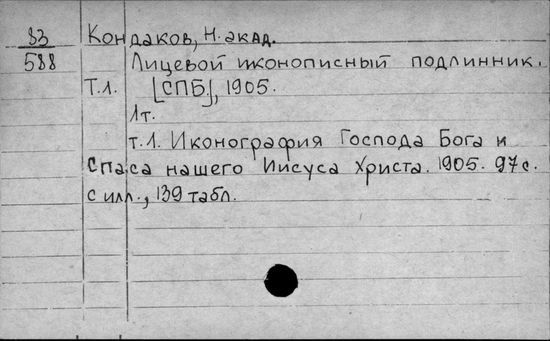 83 Кондаков, Н. акад.
588 Лицевой иконописный подлинник.
Т.1. [СПБ.], 1905.
1т.
т.1. Иконография Господа Бога и
Спаса нашего Иисуса Христа. 1905. 97 с.
с илл., 139 табл.